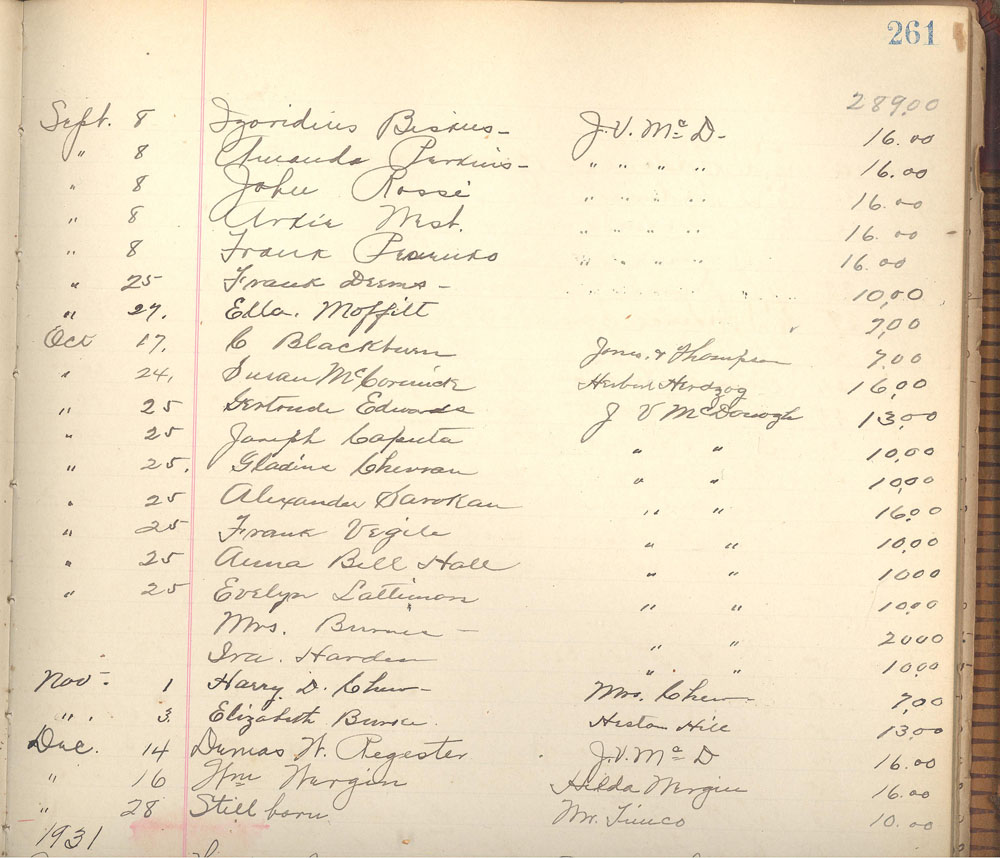 261
289.00
Sept. 8 Bisius - J. V. McD - 16.00
" 8 Amanda Perkins - " " " " 16.00
" 8 John Rossi " " " " 16.00
" 8 Ardie West. " " " " 16.00
" 8 Frank " " " " 16.00
" 25 Frank Deems - " " " " 10,00
" 27. Edla. Moffitt " 7,00
Oct 17. C Blackburn Jones & Thompson 7.00
" 24, Susan McCormick Herbert Herdzog 16,00
" 25 Gertrude Edwards J V McDonogh 13,00
" 25 Joseph Caputa " " 10,00
" 25. Gladine Chevran " " 10,00
" 25 Alexander Sarokan " " 16,00
" 25 Frank Vegile " " 10,00
" 25 Anna Bell Hall " " 1000
" 25 Evelyn Lattimore " " 10,00
Mrs. - " " 2000
Ira. Harden " " 10,00
Nov - 1 Harry. D. Chew - Mrs. Chew 7,00
" . 3. Elizabeth Heston Hill 13,00
Dec. 14 Dumas W. Regester J. V. McD 16.00
" 16 Wm Wergin Hilda Wergin 16.00
" 28 Still born Mr. Timco 10.00
1931